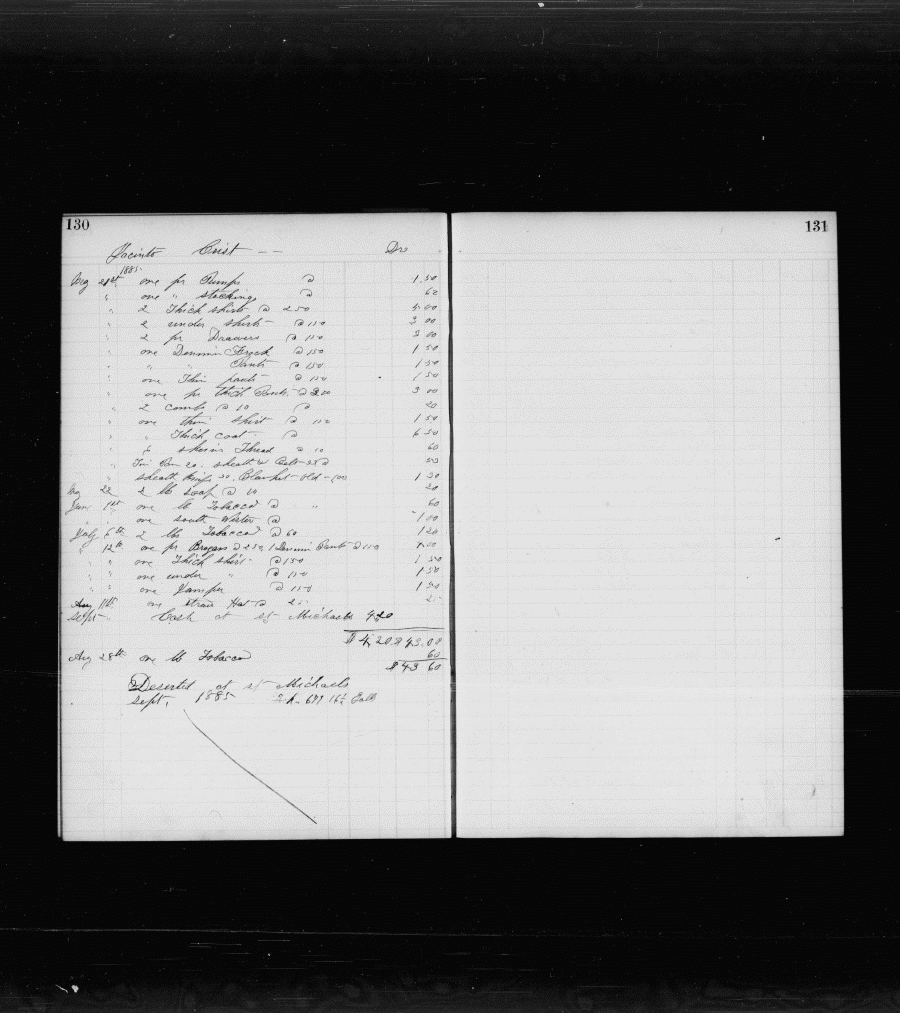 130
Jacinto Crist -- Drs
1885
May 21st one pr Pumps @ 1.50
" one " stockings @ 62
" 2 Thick shirts @ 250 4.00
" 2 under shirts @ 150 3 00
" 2 pr Drawers @ 150 3 00
" one Dennim Frock @ 150 1 50
" " " Pants @ 150 1 50
" one Thin pants @ 150 1 50
" one pr thick Pants @ 300 3 00
" 2 combs @ 10 @ 20
" one thin shirt @ 150 1 50
" " Thick coat @ 6 50
" 6 skeins Thread @ 10 60
" Tin Pan 20. sheath & Belt 35 @
" sheath knife 30. Blanket old 100 1 30
May 22 2 lb soap @ 10 20
June 1st one lb Tobacco @ " 60
" one south Wester @ 1 00
July 6th 2 lbs Tobacco @ 60 1 20
" 12th one pr Brogans @ 250, 1 Dennim Pants @ 150 4 00
" " one Thick shirt @ 150 1 50
" " one under " @ 150 1 50
" " one Jumper @ 150 1 50
Aug 11th one straw Hat @ 25 25
Sept. Cash at st Michaels 4.20
$ 4.20 $ 43.00
60
Aug 28th one lb Tobacco
$ 43 60
Deserted at st Michaels
Sept. 1885
131